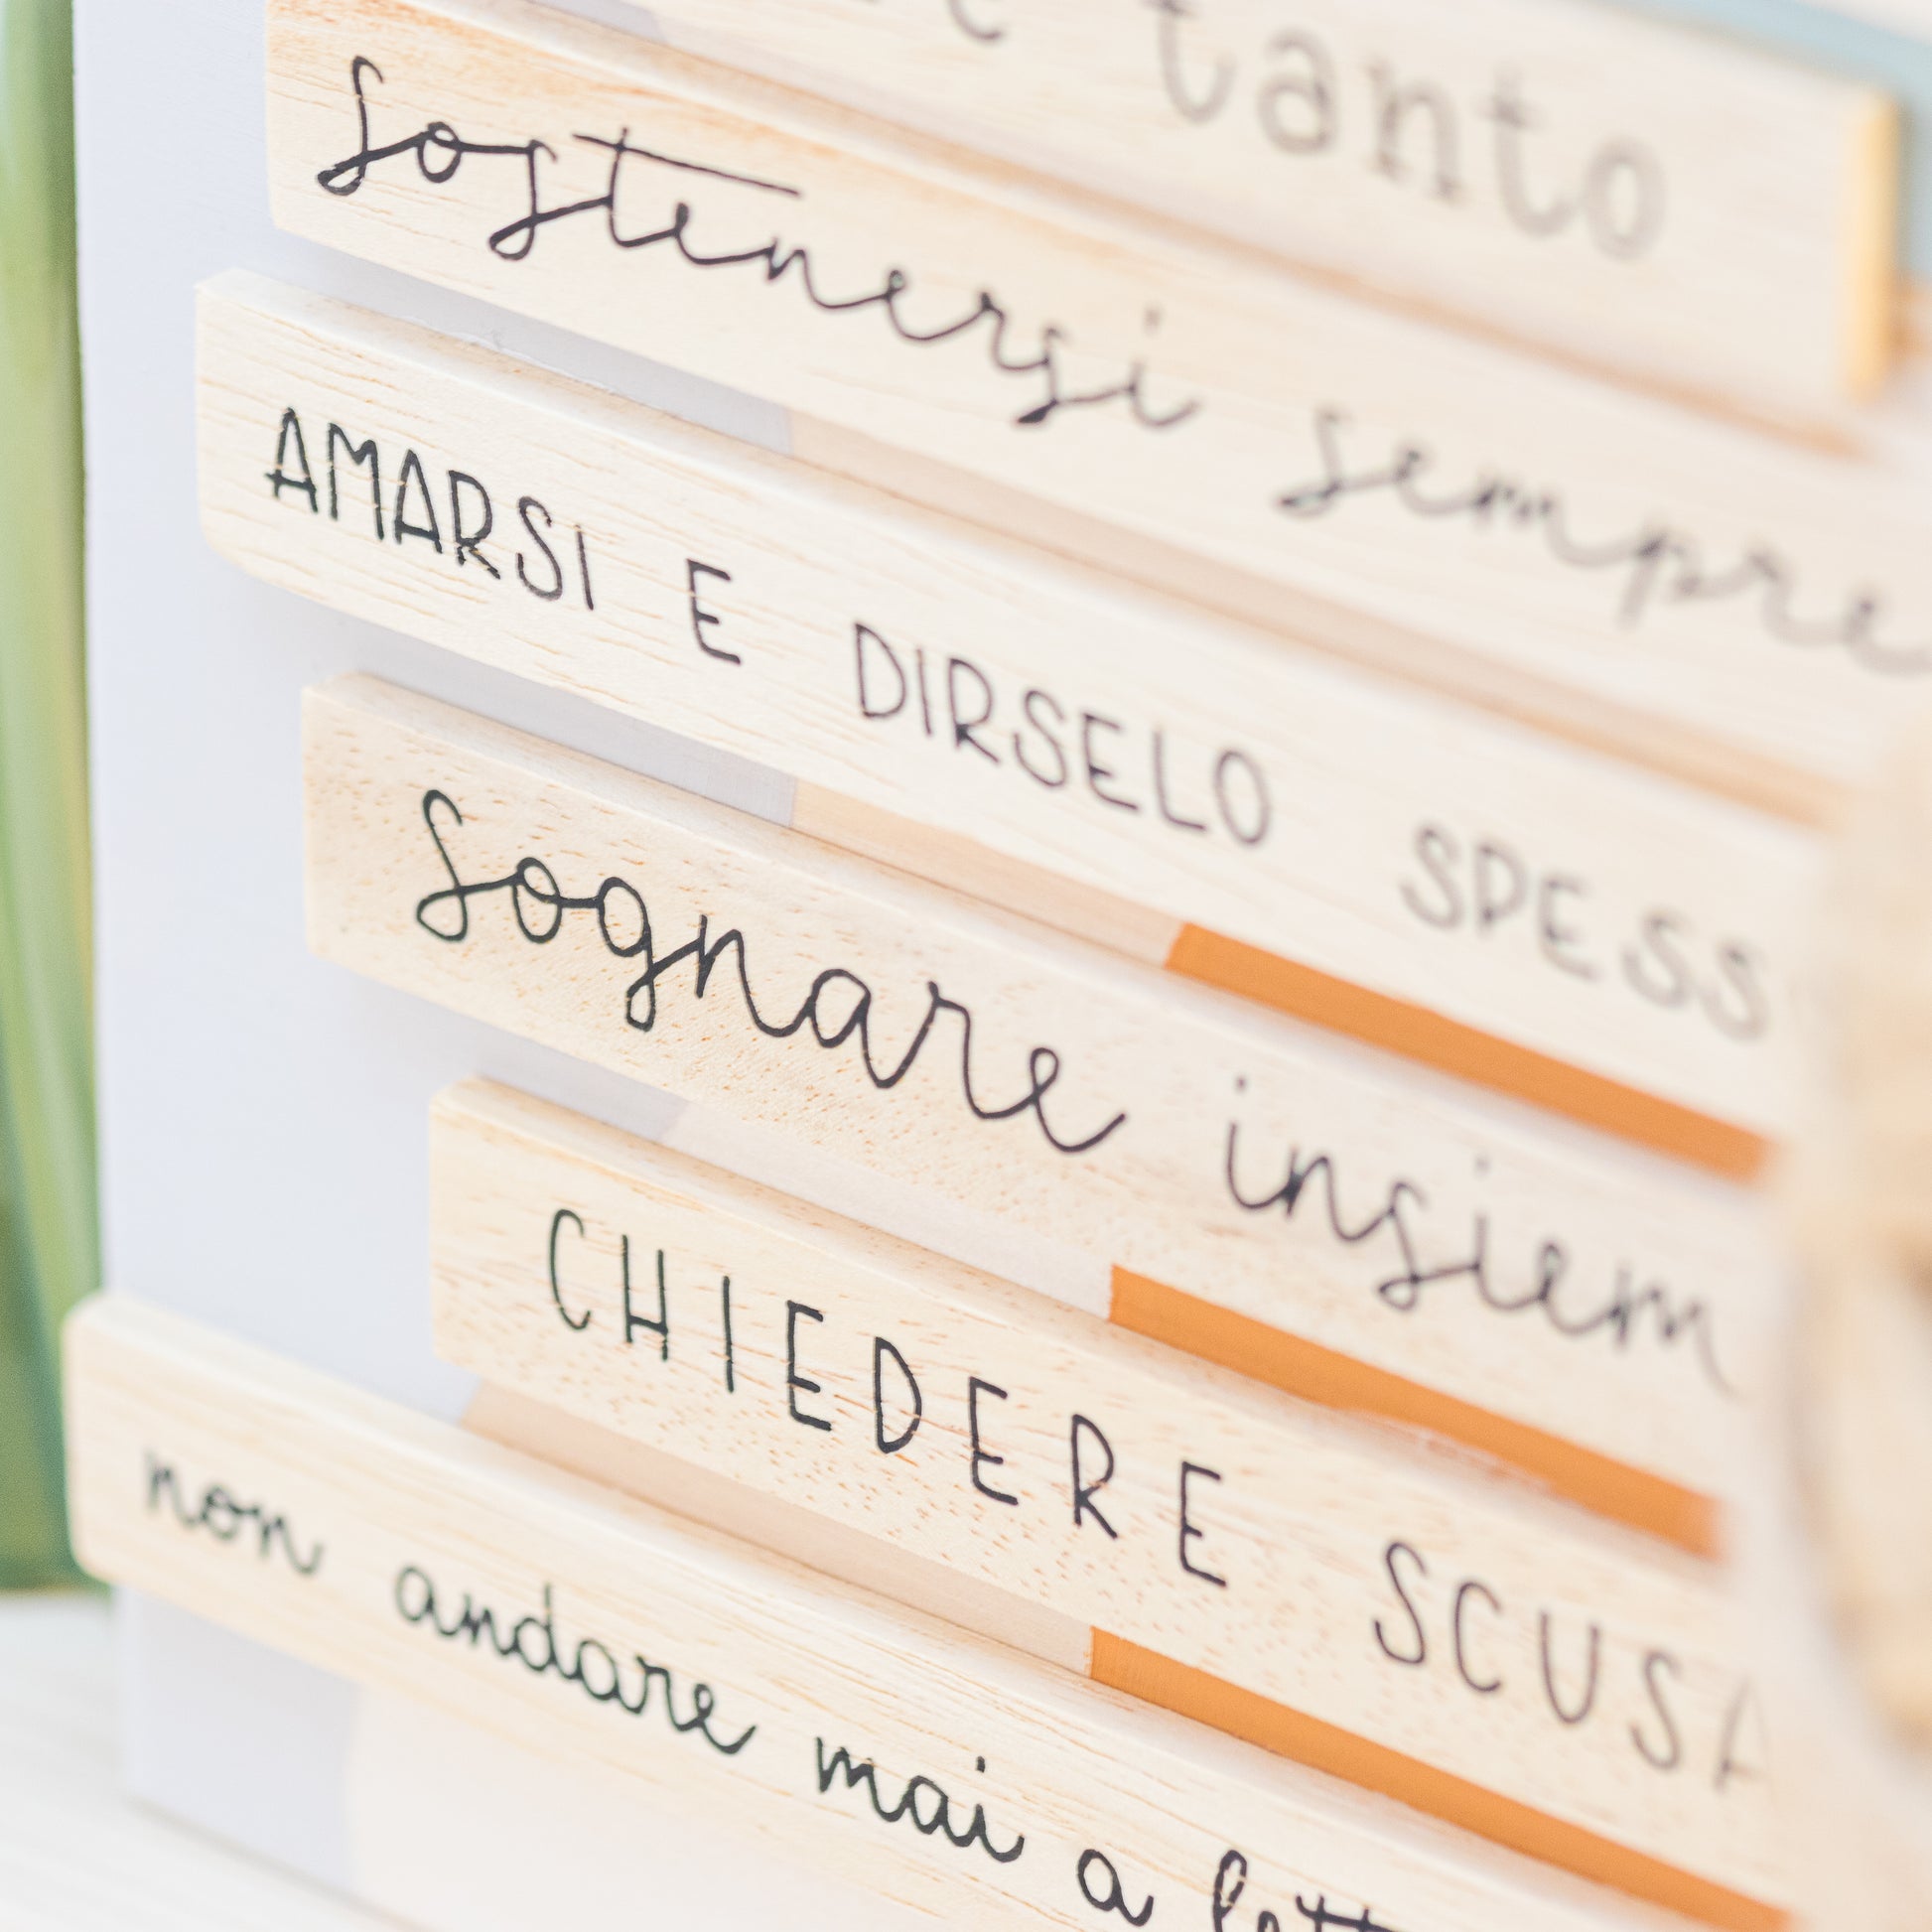 tanto
Sostenersi sempre
AMARSI E DIRSELO SPESS
Sognare insiem
CHIEDERE SCUSA
non andare mai a lett